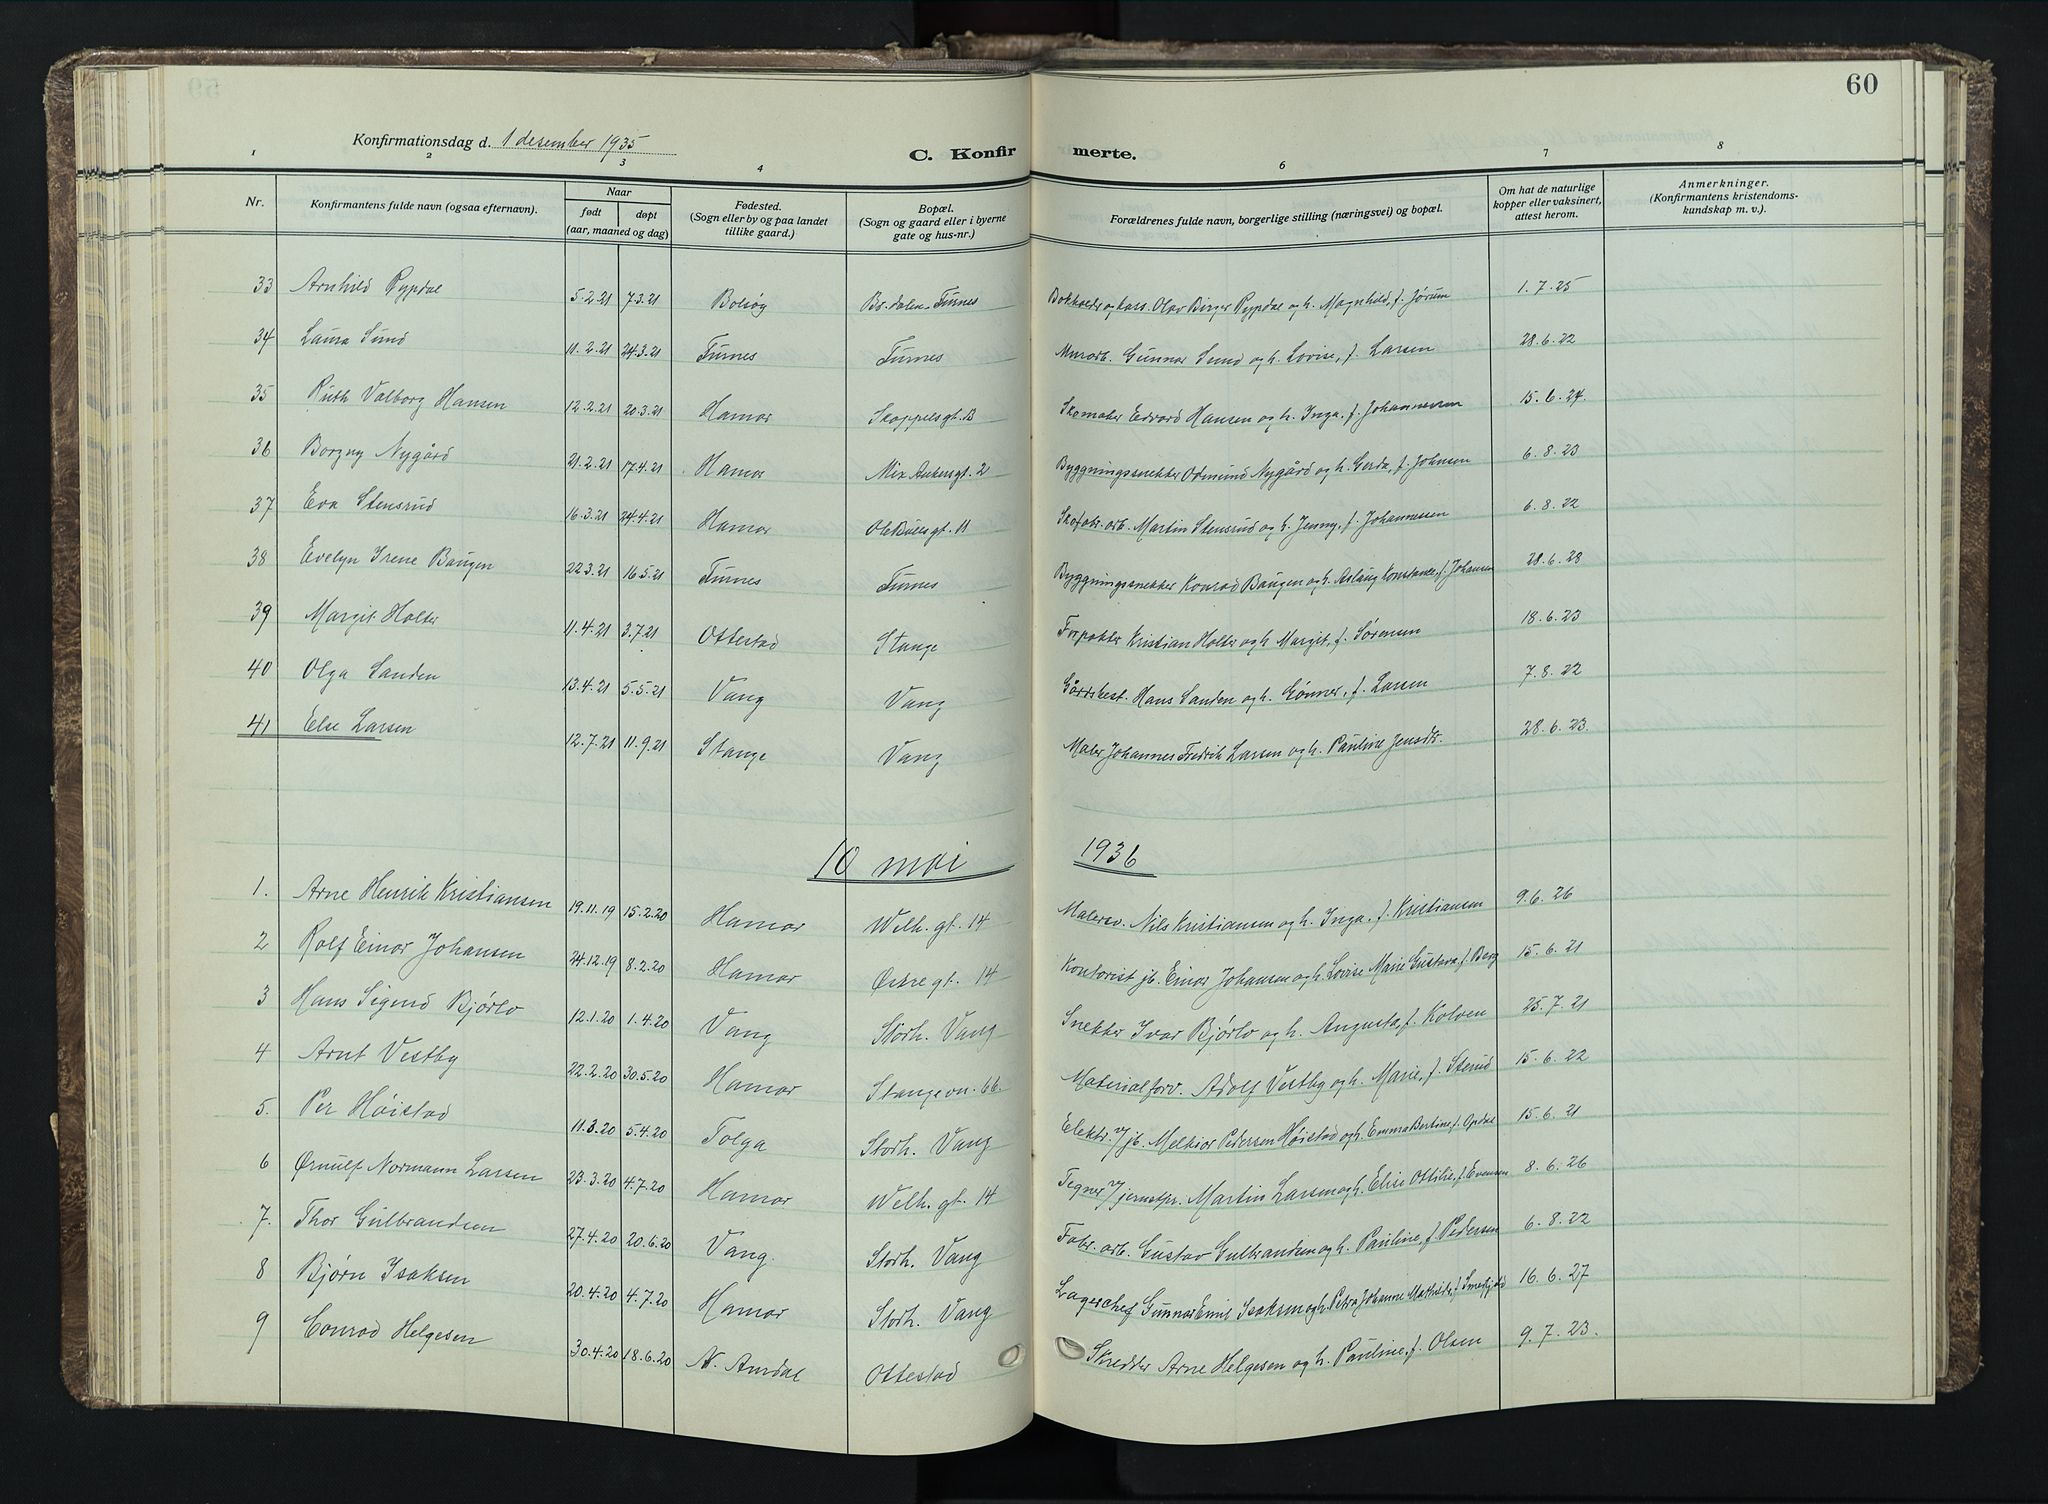 60
Konfirmationsdag d. 1 desember 1935
C. Konfirmerte.
1 2 3 4 6 7 8
Nr. Konfirmantens fulde navn (ogsaa efternavn). Naar født døpt (aar, maaned og dag) Fødested. (Sogn eller by og paa landet tillike gaard.) Bopæl. (Sogn og gaard eller i byerne gate og hus-nr.) Forældrenes fulde navn, borgerlige stilling (næringsvei) og bopæl. Om hat de naturlige kopper eller vaksinert, attest herom. Anmerkninger. (Konfirmantens kristendomskundskap m. v.).
33 Arnhild Rypdal 5.2.21 7.3.21 Bolsøy Furnes Olav Birger Rypdal og h. Magnhild, f. Jørum 1.7.25
34 Laura Sund 11.2.21 24.3.21 Furnes Furnes Murarb. Gunnar Sund og h. Lovise, f. Larsen 28.6.22
35 Ruth Valborg Hansen 12.2.21 20.3.21 Hamar Skappelsgt. Skomaker Edvard Hansen og h. Inga, f. Johannessen 15.6.24.
36 Borgny Nygård 21.2.21 17.4.21 Hamar Ankersgt. 2 Byggningssnekker Odmund Nygård og h. Gerda, f. Johnsen 6.8.23
37 Eva Stensrud 16.3.21 24.4.21 Hamar Ole Bullsgt. 11 Skofabr. arb. Martin Stensrud og h. Jenny, f. Johannessen 6.8.22
38 Evelyn Irene Baugen 22.3.21 16.5.21 Furnes Furnes Byggningssnekker Konrad Baugen og h. Aslaug Konstance, f. Johansen 28.6.28
39 Margit Holter 11.4.21 3.7.21 Ottestad Stange Forpakter Kristian Holter og h. Margit, f. Sørensen 18.6.23
40 Olga Sanden 13.4.21 5.5.21 Vang Vang Gårdbest. Hans Sanden og h. Gønner, f. Larsen 7.8.22
41 Else Larsen 12.7.21 11.9.21 Stange Vang Maler Johannes Fredrik Larsen og h. Pauline Jensdtr. 28.6.23.
10 mai 1936
1. Arne Henrik Kristiansen 19.11.19 15.2.20 Hamar Welh. gt. 14 Malersv. Nils Kristiansen og h. Inga, f. Kristiansen 9.6.26
2 Rolf Einar Johansen 24.12.19 8.2.20 Hamar Østregt. 14 Kontorist jb. Einar Johansen og h. Lovise Marie Gustava, f. Berg 15.6.21
3 Hans Sigurd Bjørlo 12.1.20 1.4.20 Vang Storh. Vang Snekker Ivar Bjørlo og h. Augusta, f. Kolven 25.7.21
4 Arnt Vestby 22.2.20 30.5.20 Hamar Stangevn. 66. Materialforv. Adolf Vestby og h. Marie, f. Sterud 15.6.22
5. Per Høistad 11.3.20 5.4.20 Tolga Storh. Vang Elektr. v/jb. Melkior Pedersen Høistad og h. Emma Bertine, f. Opdal 15.6.21
6 Ørnulf Normann Larsen 23.3.20 4.7.20 Hamar Welh. gt. 14 Tegner v/jernstøp. Martin Larsen og h. Elise Ottilie, f. Evensen 8.6.26
7. Thor Gulbrandsen 27.4.20 20.6.20 Vang. Storh. Vang Fabr. arb. Gustav Gulbrandsen og h. Pauline, f. Pedersen 6.8.22
8 Bjørn Isaksen 20.4.20 4.7.20 Hamar Storh. Vang Lagerchef Gunnar Emil Isaksen og h. Petra Johanne Mathilde, f. 16.6.27
9 Conrad Helgesen 30.4.20 18.6.20 N. Aurdal Ottestad Skredder Arne Helgesen og h. Pauline, f. Olsen 9.7.23.